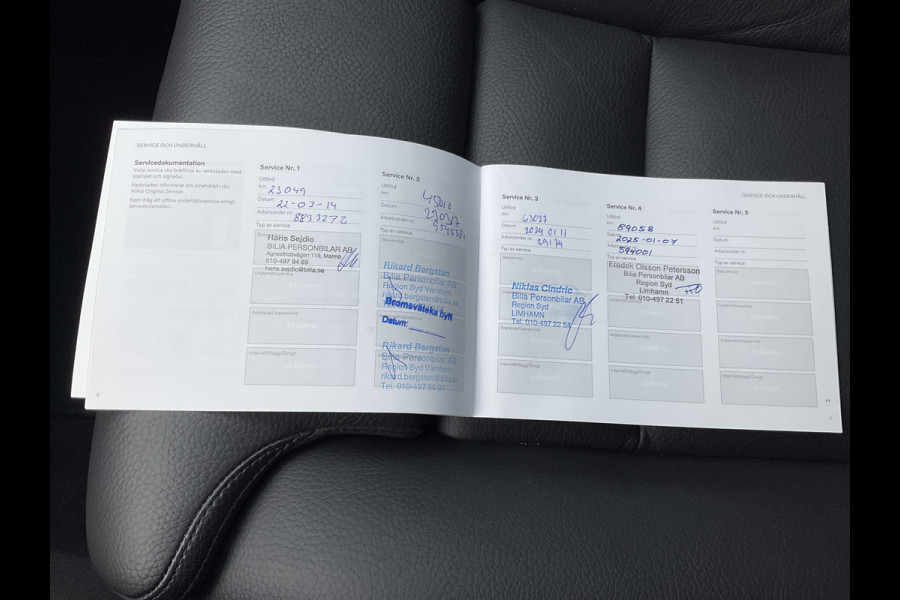 SERVICE OCH UNDERHÅLL
Servicedokumentation
Varje service ska bokföras av verkstaden med
stämpel och signatur.
Verkstaden informerar om innehållet i din
Volvo Original Service.
Kom ihåg att utföra underhållsservice enligt
serviceintervallen.
Service Nr. 1
Utförd
km 23049
Datum 22-03-14
Arbetsorder nr. 8853272
Typ av service
Haris Sejdic
BILIA PERSONBILAR AB
Agnesfridsvägen 119, Malmö
010-497 94 88
haris.sejdic@bilia.se
Underhållsservice
Anpassad basservice
Intervalltillägg/Övrigt
6
Service Nr. 2
Utförd
km 45010
Datum
Arbetsorder nr.
Typ av service
Basservice
Rikard Bergsten
Bilia Personbilar AB
Region Syd Värnhem
rikard.bergsten@bilia.se
Bromsvätska bytt
Datum:
Rikard Bergsten
Bilia Personbilar AB
Region Syd Värnhem
rikard.bergsten@bilia.se
Tel: 010-497 95 01
Service Nr. 3
Utförd
km
Datum 2024 01 11
Arbetsorder nr. 29174
Typ av service
Basservice
STÄMPEL
Niklas Cindric
Bilia Personbilar AB
Region Syd
LIMHAMN
Tel. 010-497 22 54
Intervalltillägg/Övrigt
STÄMPEL
SERVICE OCH UNDERHÅLL
Service Nr. 4
Utförd
km 89058
Datum 2025-01-07
Arbetsorder nr. 594001
Typ av service
Fredrik Olsson Petersson
Bilia Personbilar AB
Region Syd
Limhamn
Tel. 010-497 22 51
Anpassad basservice
STÄMPEL
Intervalltillägg/Övrigt
STÄMPEL
Service Nr. 5
Utförd
km
Datum
Arbetsorder nr.
Typ av service
Basservice
STÄMPEL
Underhållsservice
STÄMPEL
Anpassad basservice
STÄMPEL
Intervalltillägg/Övrigt
STÄMPEL